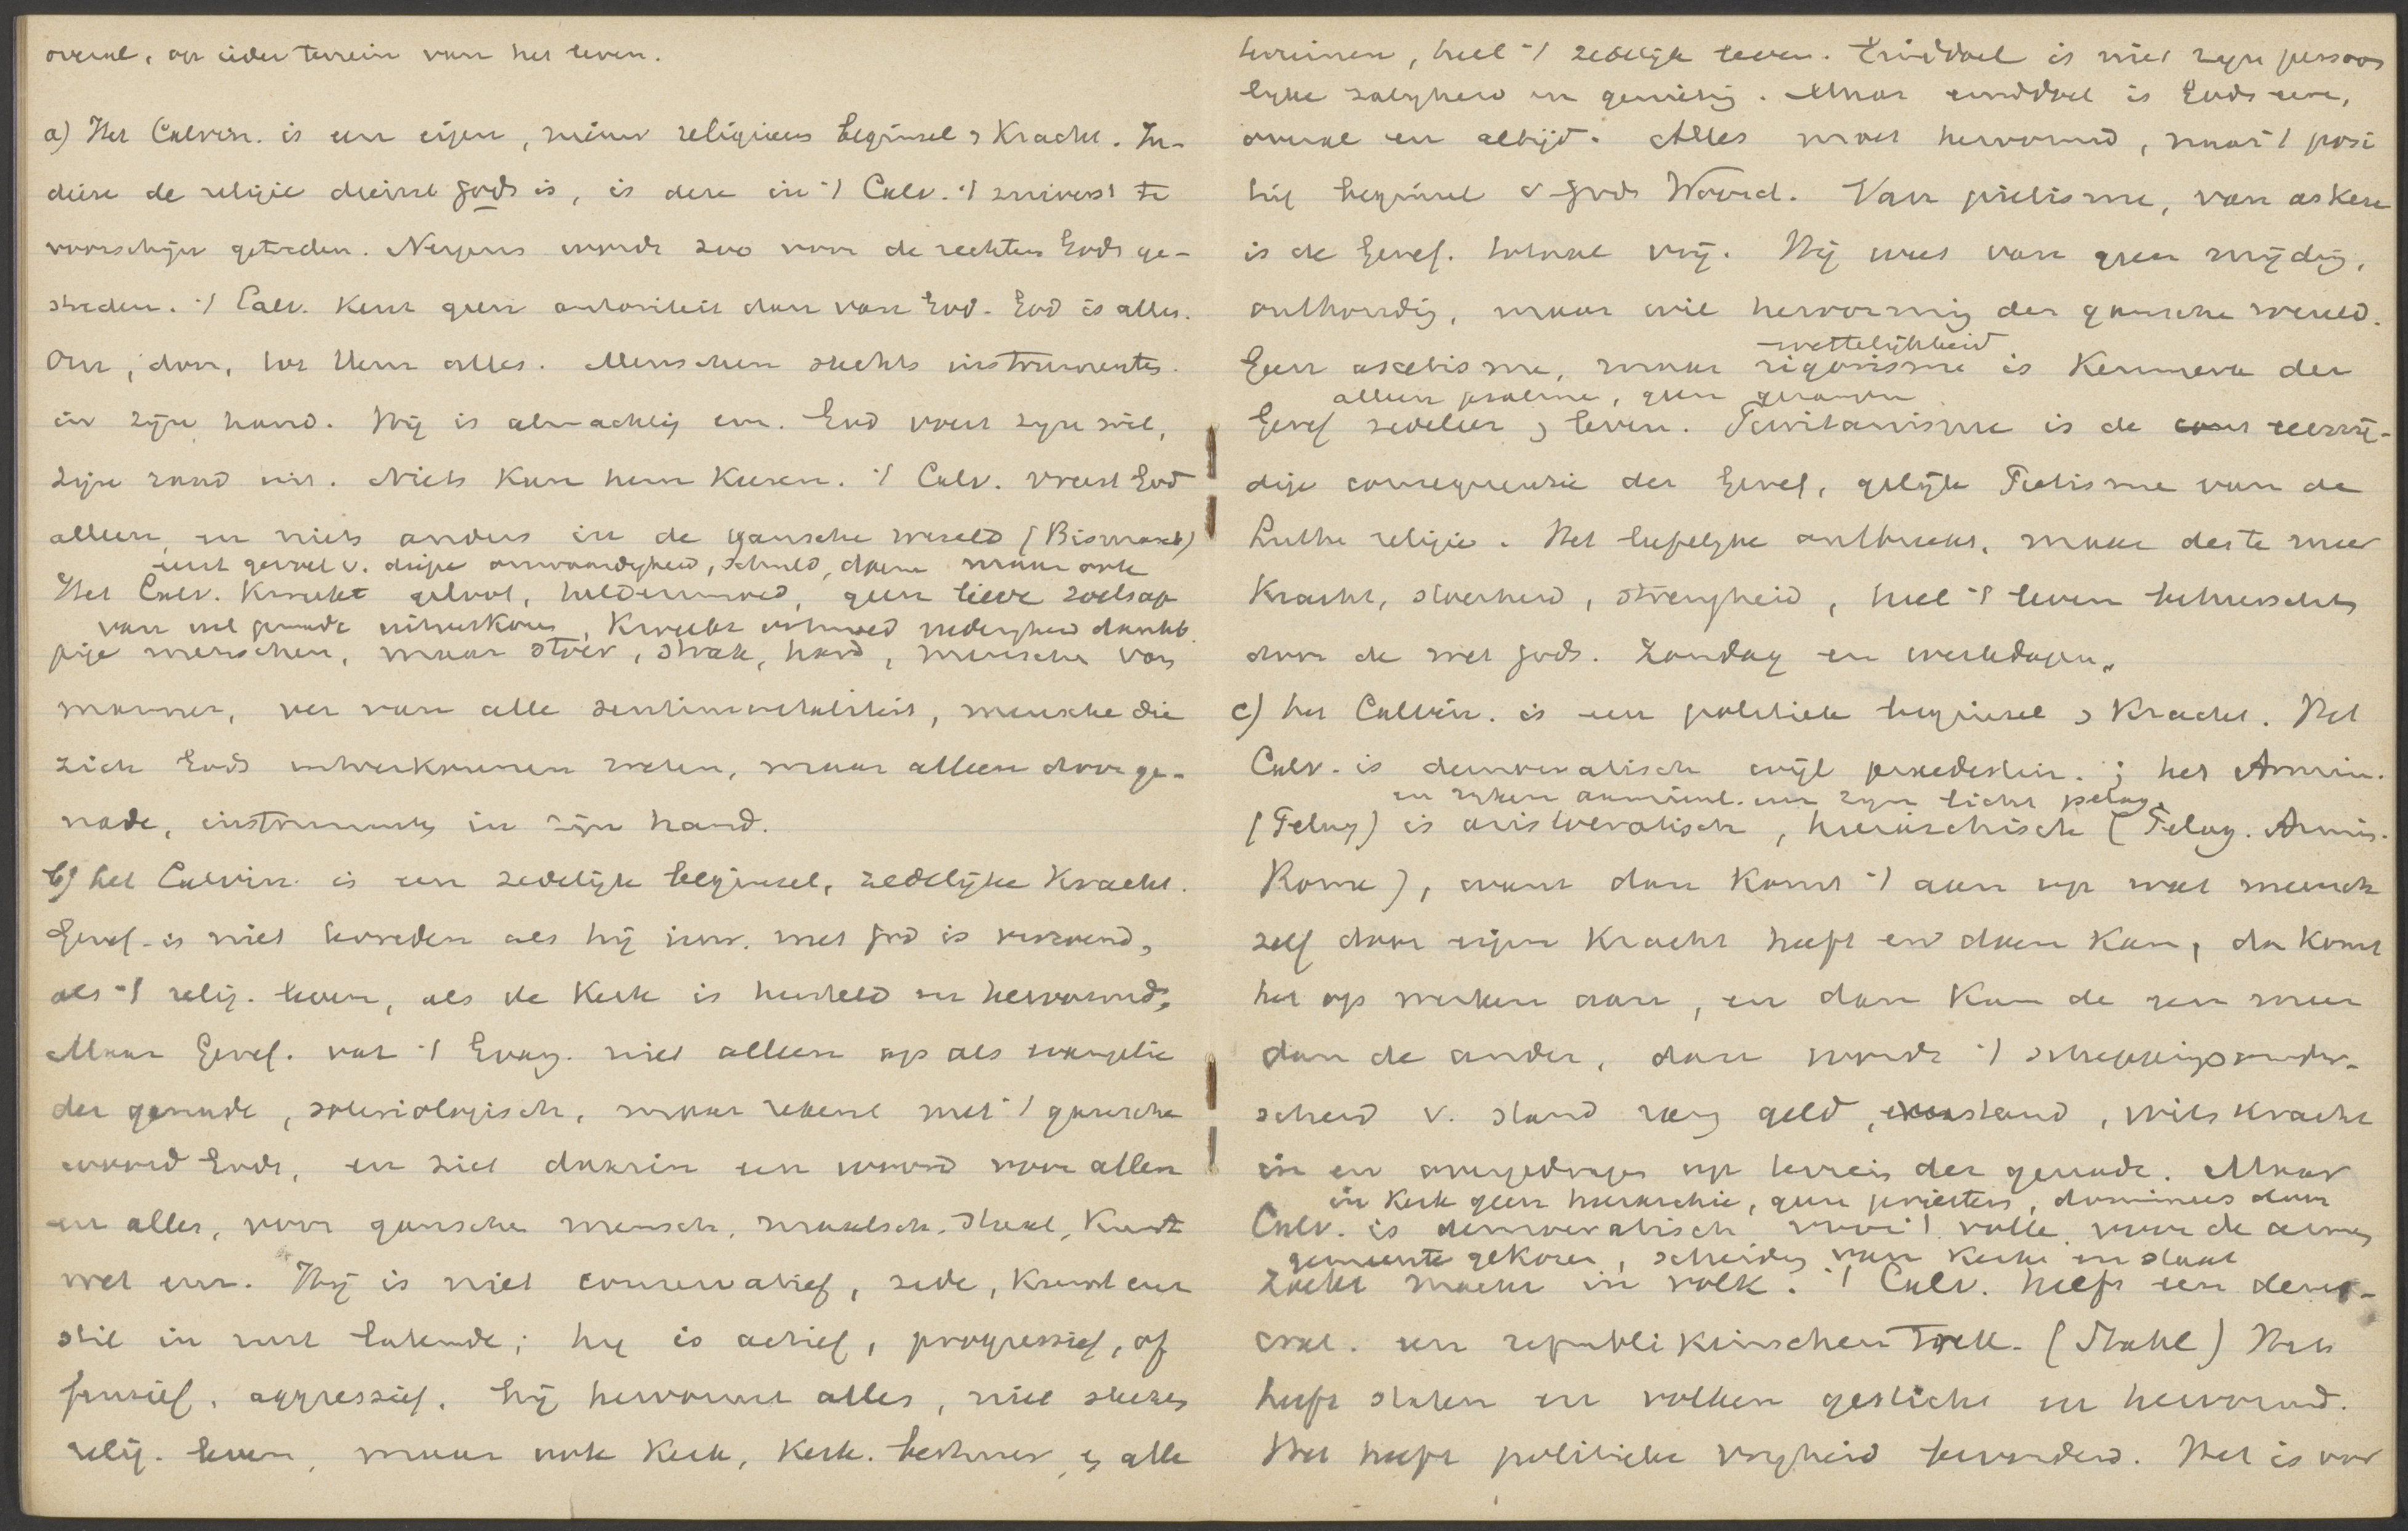 overal, op ieder terrein van het leven.
a) Het Calvin. is een eigen, nieuw religieus beginsel & Kracht. In-
diese de religie dienst Gods is, is deze in 't Calv. 't zuiverst te
voorschijn getreden. Nergens wordt zoo voor de rechten Gods ge-
streden. 't Calv. Kent geen autoriteit dan van God. God is alles.
Om, door, tot Hem alles. Menschen slechts instrumenten
in zijn hand. Hij is almachtig enz. God voert zijn wil,
zijn raad uit. Niets Kan hem Keeren. 't Calv. vreest God
alleen en niets anders in de gansche wereld (Bismarck)
met gevoel v. diepe onwaardigheid, schuld, daarin maar ook
Het Calv. Kweekt geloof, heldenmoed, geen lieve zoetsap
van vol genade uitverkoren, Kweekt ootmoed nederigheid dankb.
pige menschen, maar stoer, strak, hard, menschen van
marmer, ver van alle sentimentaliteit, mensche die
zich Gods uitverkorenen weten, maar alleen door ge-
nade, instrumenten in zijn hand.
b) het Calvin. is een zedelijk beginsel, zedelijke Kracht.
Geref. is niet tevreden als hij inw. met God is verzoend,
als 't relig. leven, als de Kerk is hersteld en hervormd,
Maar Geref. vat 't Evang. niet alleen op als evangelie
der genade, soteriologisch, maar rekent met 't gansche
woord Gods, en ziet daarin een woord voor allen
en alles, voor gansche mensch, maatsch. staat, Kunst
wet enz. Hij is niet conservatief, zede, Kunst enz
stil in rust latende; hij is actief, progressief, of
fensief, aggressief. Hij hervormt alles, niet slechts
relig. leven, maar ook Kerk, Kerk. bestuur, & alle
terreinen, heel 't zedelijk leven. Einddoel is niet zijn persoon
lijke zaligheid en genieting. Maar einddoel is Gods eere,
overal en altijd. Alles moet hervormd, naar 't posi
tief beginsel v Gods Woord. Van piëtisme, van askese
is de Geref. totaal vrij. Hij weet van geen mijding,
onthouding, maar wil hervorming der gansche wereld.
wettelijkheid
Geen ascetisme, maar rigorisme is Kenmerk der
alleen psalmen, geen gezangen
Geref zedeleer & leven. Puritanisme is de eenzij-
dige consequensie der Geref, gelijk Pietisme van de
Luthe religie. Het liefelijke ontbreekt, maar des te meer
Kracht, stoerheid, strengheid, heel 't leven beheerscht
door de wet Gods. Zondag en werkdagen.
c) het Calvin. is een politiek beginsel & Kracht. Het
Calv. is democratisch wijl praedestin.; het Armin.
(Pelag) is aristocratisch, hierarchisch (Pelag. Armin.
Rome), want dan Komt 't aan op wat mensch
zelf door eigen Kracht heeft en doen Kan, dan Komt
het op werken aan, en dan Kan de een meer
dan de ander, dan wordt 't scheppingsonder-
scheid v. stand rang geld, verstand, wilskracht
in en overgedragen op terrein der genade. Maar
in Kerk geen hierarchie, geen priesters, dominees door
Calv. is democratisch voor 't volk, voor de armen
gemeente gekozen, scheiding van Kerk en staat
zoekt macht in volk. 't Calv. heeft een demo-
crat. en republikeinschen trek. (Stahl) Het
heeft staten en volken gesticht en hervormd.
Het heeft politieke vrijheid bevorderd. Het is voor